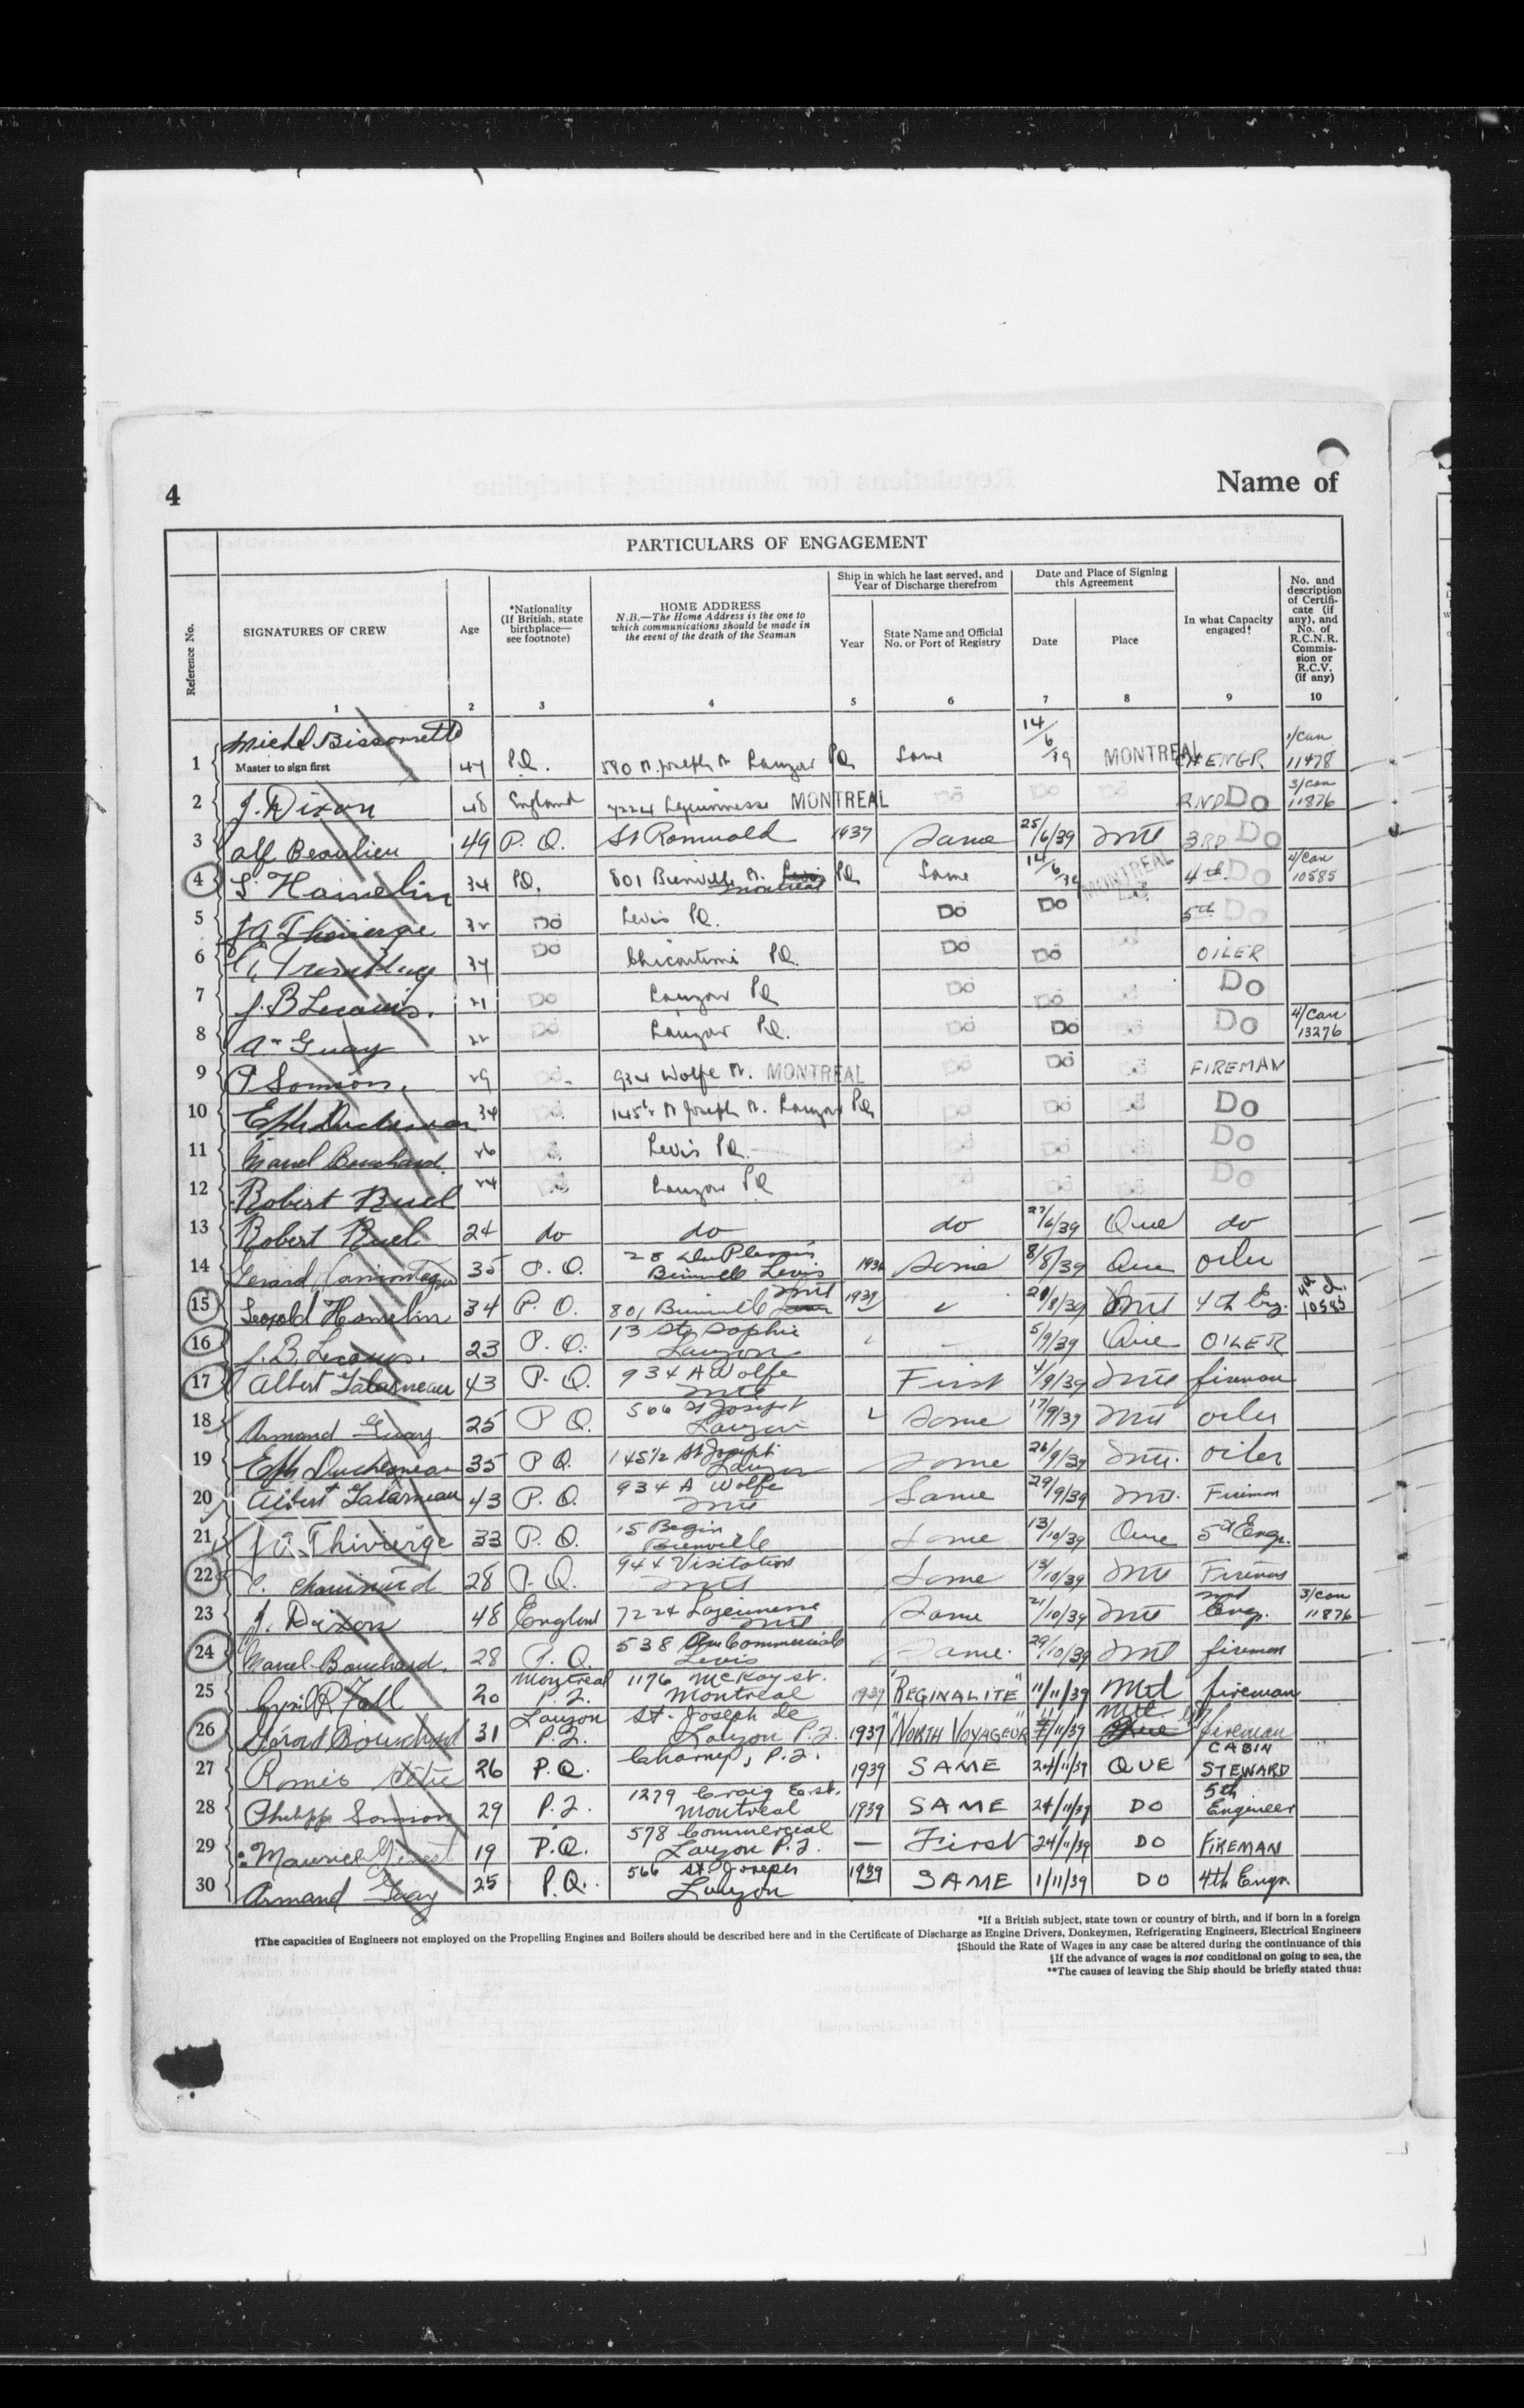 4
Name of
PARTICULARS OF ENGAGEMENT
Reference No.
SIGNATURES OF CREW
Age
*Nationality (If British, state birthplace— see footnote)
HOME ADDRESS
N.B.—The Home Address is the one to which communications should be made in the event of the death of the Seaman
Ship in which he last served, and Year of Discharge therefrom
Year
State Name and Official No. or Port of Registry
Date and Place of Signing this Agreement
Date
Place
In what Capacity engaged†
No. and description of Certificate (if any), and No. of R.C.N.R. Commission or R.C.V. (if any)
1 2 3 4 5 6 7 8 9 10
1 Michel Bissonnette Master to sign first 47 P.Q. 580 St. Joseph St Lauzon PQ Same 14/6/39 MONTREAL CH ENGR 1/Can 11478
2 J. Dixon 48 England 7224 Lajeunnesse MONTREAL Do Do Do 2ND Do 3/Can 11876
3 Alf Beaulieu 49 P. Q. St Romuald 1937 Same 25/6/39 Mtl 3RD Do
4 L. Hamelin 34 PQ. 801 Bienville St. Levis Montreal PQ Same 14/6/39 MONTREAL 4th Do 4/Can 10585
5 J A Thivierge 32 Do Levis PQ. Do Do 5th Do
6 Tremblay 34 Do Chicoutimi PQ. Do Do OILER
7 J. B Lecours. 21 Do Lauzon PQ Do Do Do Do
8 A. Guay 22 Do Lauzon PQ. Do Do Do Do 4/Can 13276
9 P Samson. 29 Do 934 Wolfe St. MONTREAL Do Do Do FIREMAN
10 Eph Duchesneau 34 Do 145½ St Joseph St. Lauzon PQ Do Do Do Do
11 Marcel Bouchard. 26 Do Levis PQ. Do Do Do Do
12 Robert Ruel 24 Do Lauzon PQ Do Do Do Do
13 Robert Ruel 24 do do do 27/6/39 Que do
14 Gerard Lamontagne 35 P. Q. 28 DuPlessis Bienville Levis 1936 Same 8/8/39 Que oiler
15 Leopold Hamelin 34 P. Q. 801 Bienville Mtl 1939 28/8/39 Mtl 4th Eng. 10585
16 J. B. Lecours. 23 P. Q. 13 Ste Sophie Lauzon — 5/9/39 Que OILER
17 Albert Galarneau 43 P. Q. 934 A Wolfe Mtl First 4/9/39 Mtl fireman
18 Armand Guay 25 P Q. 566 St Joseph Lauzon Same 17/9/39 Mtl oiler
19 Eph Duchesneau 35 P Q. 145½ St Joseph Lauzon Same 26/9/39 Mtl. oiler
20 Albert Galarneau 43 P. Q. 934 A Wolfe Mtl Same 29/9/39 Mtl. Fireman
21 J A Thivierge 33 P. Q. 15 Begin Bienville Same 13/10/39 Que 5th Engr.
22 Chouinard 28 P. Q. 944 Visitation Mtl Same 13/10/39 Mtl Fireman
23 J. Dixon 48 England 7224 Lajeunesse Mtl Same 21/10/39 Mtl 2nd Eng. 3/Can 11876
24 Marcel Bouchard. 28 P. Q. 538 Commerciale Levis Same. 29/10/39 Mtl fireman
25 Cyril R Fall 20 Montreal P.Q. 1176 McKay st. Montreal 1939 "REGINALITE" 11/11/39 Mtl fireman
26 Gérard Bouchard 31 Lauzon P.Q. St. Joseph de Lauzon P.Q. 1937 "NORTH VOYAGEUR" /11/39 Mtl fireman
27 Romeo 26 P.Q. Charny, P.Q. 1939 SAME 24/11/39 QUE CABIN STEWARD
28 Philippe Samson 29 P.Q. 1279 Craig E. st. Montreal 1939 SAME 24/11/39 DO 5th Engineer
29 Maurice Genest 19 P.Q. 578 Commercial Lauzon P.Q. — First 24/11/39 DO FIREMAN
30 Armand Guay 25 P.Q. 566 St. Joseph Lauzon 1939 SAME 1/11/39 DO 4th Engr.
*If a British subject, state town or country of birth, and if born in a foreign
†The capacities of Engineers not employed on the Propelling Engines and Boilers should be described here and in the Certificate of Discharge as Engine Drivers, Donkeymen, Refrigerating Engineers, Electrical Engineers
‡Should the Rate of Wages in any case be altered during the continuance of this
§If the advance of wages is not conditional on going to sea, the
**The causes of leaving the Ship should be briefly stated thus: